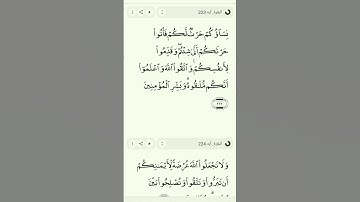 البقرة، آية 223
نِسَآؤُكُمۡ حَرۡثٞ لَّكُمۡ فَأۡتُواْ
حَرۡثَكُمۡ أَنَّىٰ شِئۡتُمۡۖ وَقَدِّمُواْ
لِأَنفُسِكُمۡۚ وَٱتَّقُواْ ٱللَّهَ وَٱعۡلَمُوٓاْ
أَنَّكُم مُّلَٰقُوهُۗ وَبَشِّرِ ٱلۡمُؤۡمِنِينَ
٢٢٣
البقرة، آية 224
وَلَا تَجۡعَلُواْ ٱللَّهَ عُرۡضَةٗ لِّأَيۡمَٰنِكُمۡ
أَن تَبَرُّواْ وَتَتَّقُواْ وَتُصۡلِحُواْ بَيۡنَ